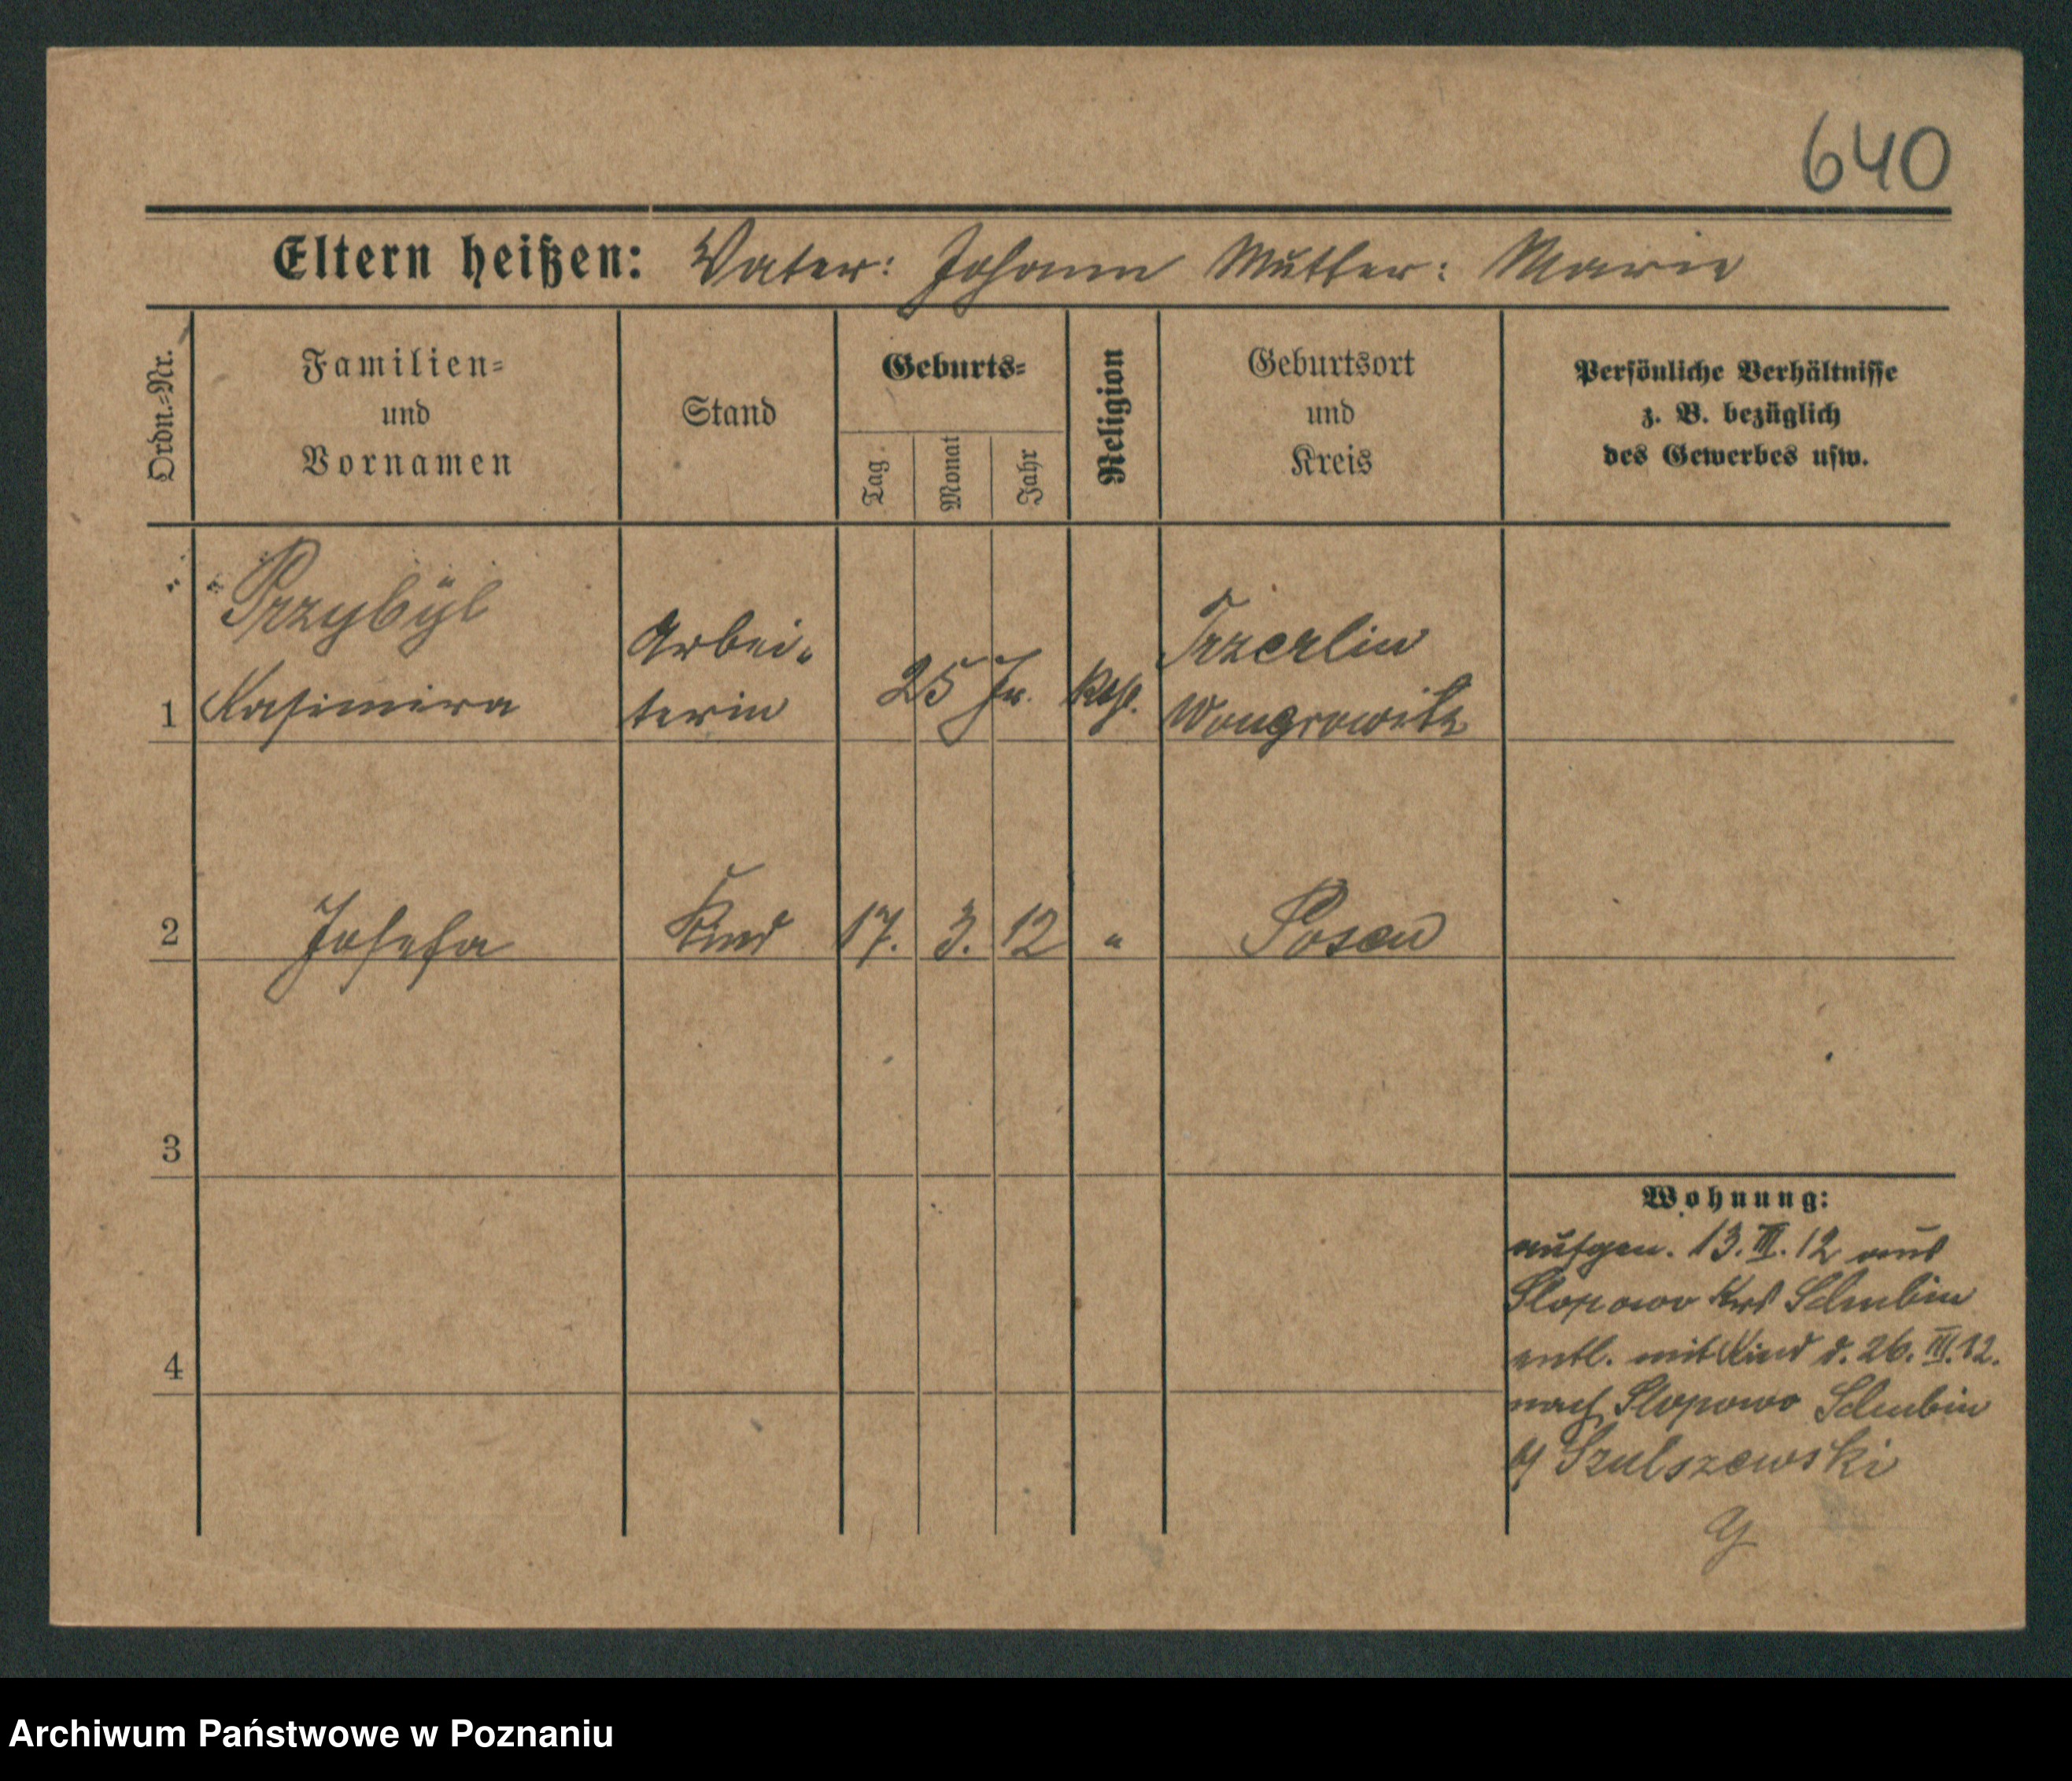 640
Eltern heißen: Vater: Johann Mutter: Marie
Ordn.-Nr.
Familien-
und
Vornamen
Stand
Geburts-
Tag
Monat
Jahr
Religion
Geburtsort
und
Kreis
Persönliche Verhältnisse
z. B. bezüglich
des Gewerbes usw.
Przybyl
Kasimira
Arbei-
terin
25 Jr.
Kth.
Trzerlin
Wongrowitz
1
2 Josefa Kind 17. 3. 12 " Posen
3
4
Wohnung:
aufgen. 13. III. 12 aus
Slopowo Krs Schubin
entl. mit Kind d. 26. III. 12.
nach Slopowo Schubin
Szulszewski
Archiwum Państwowe w Poznaniu